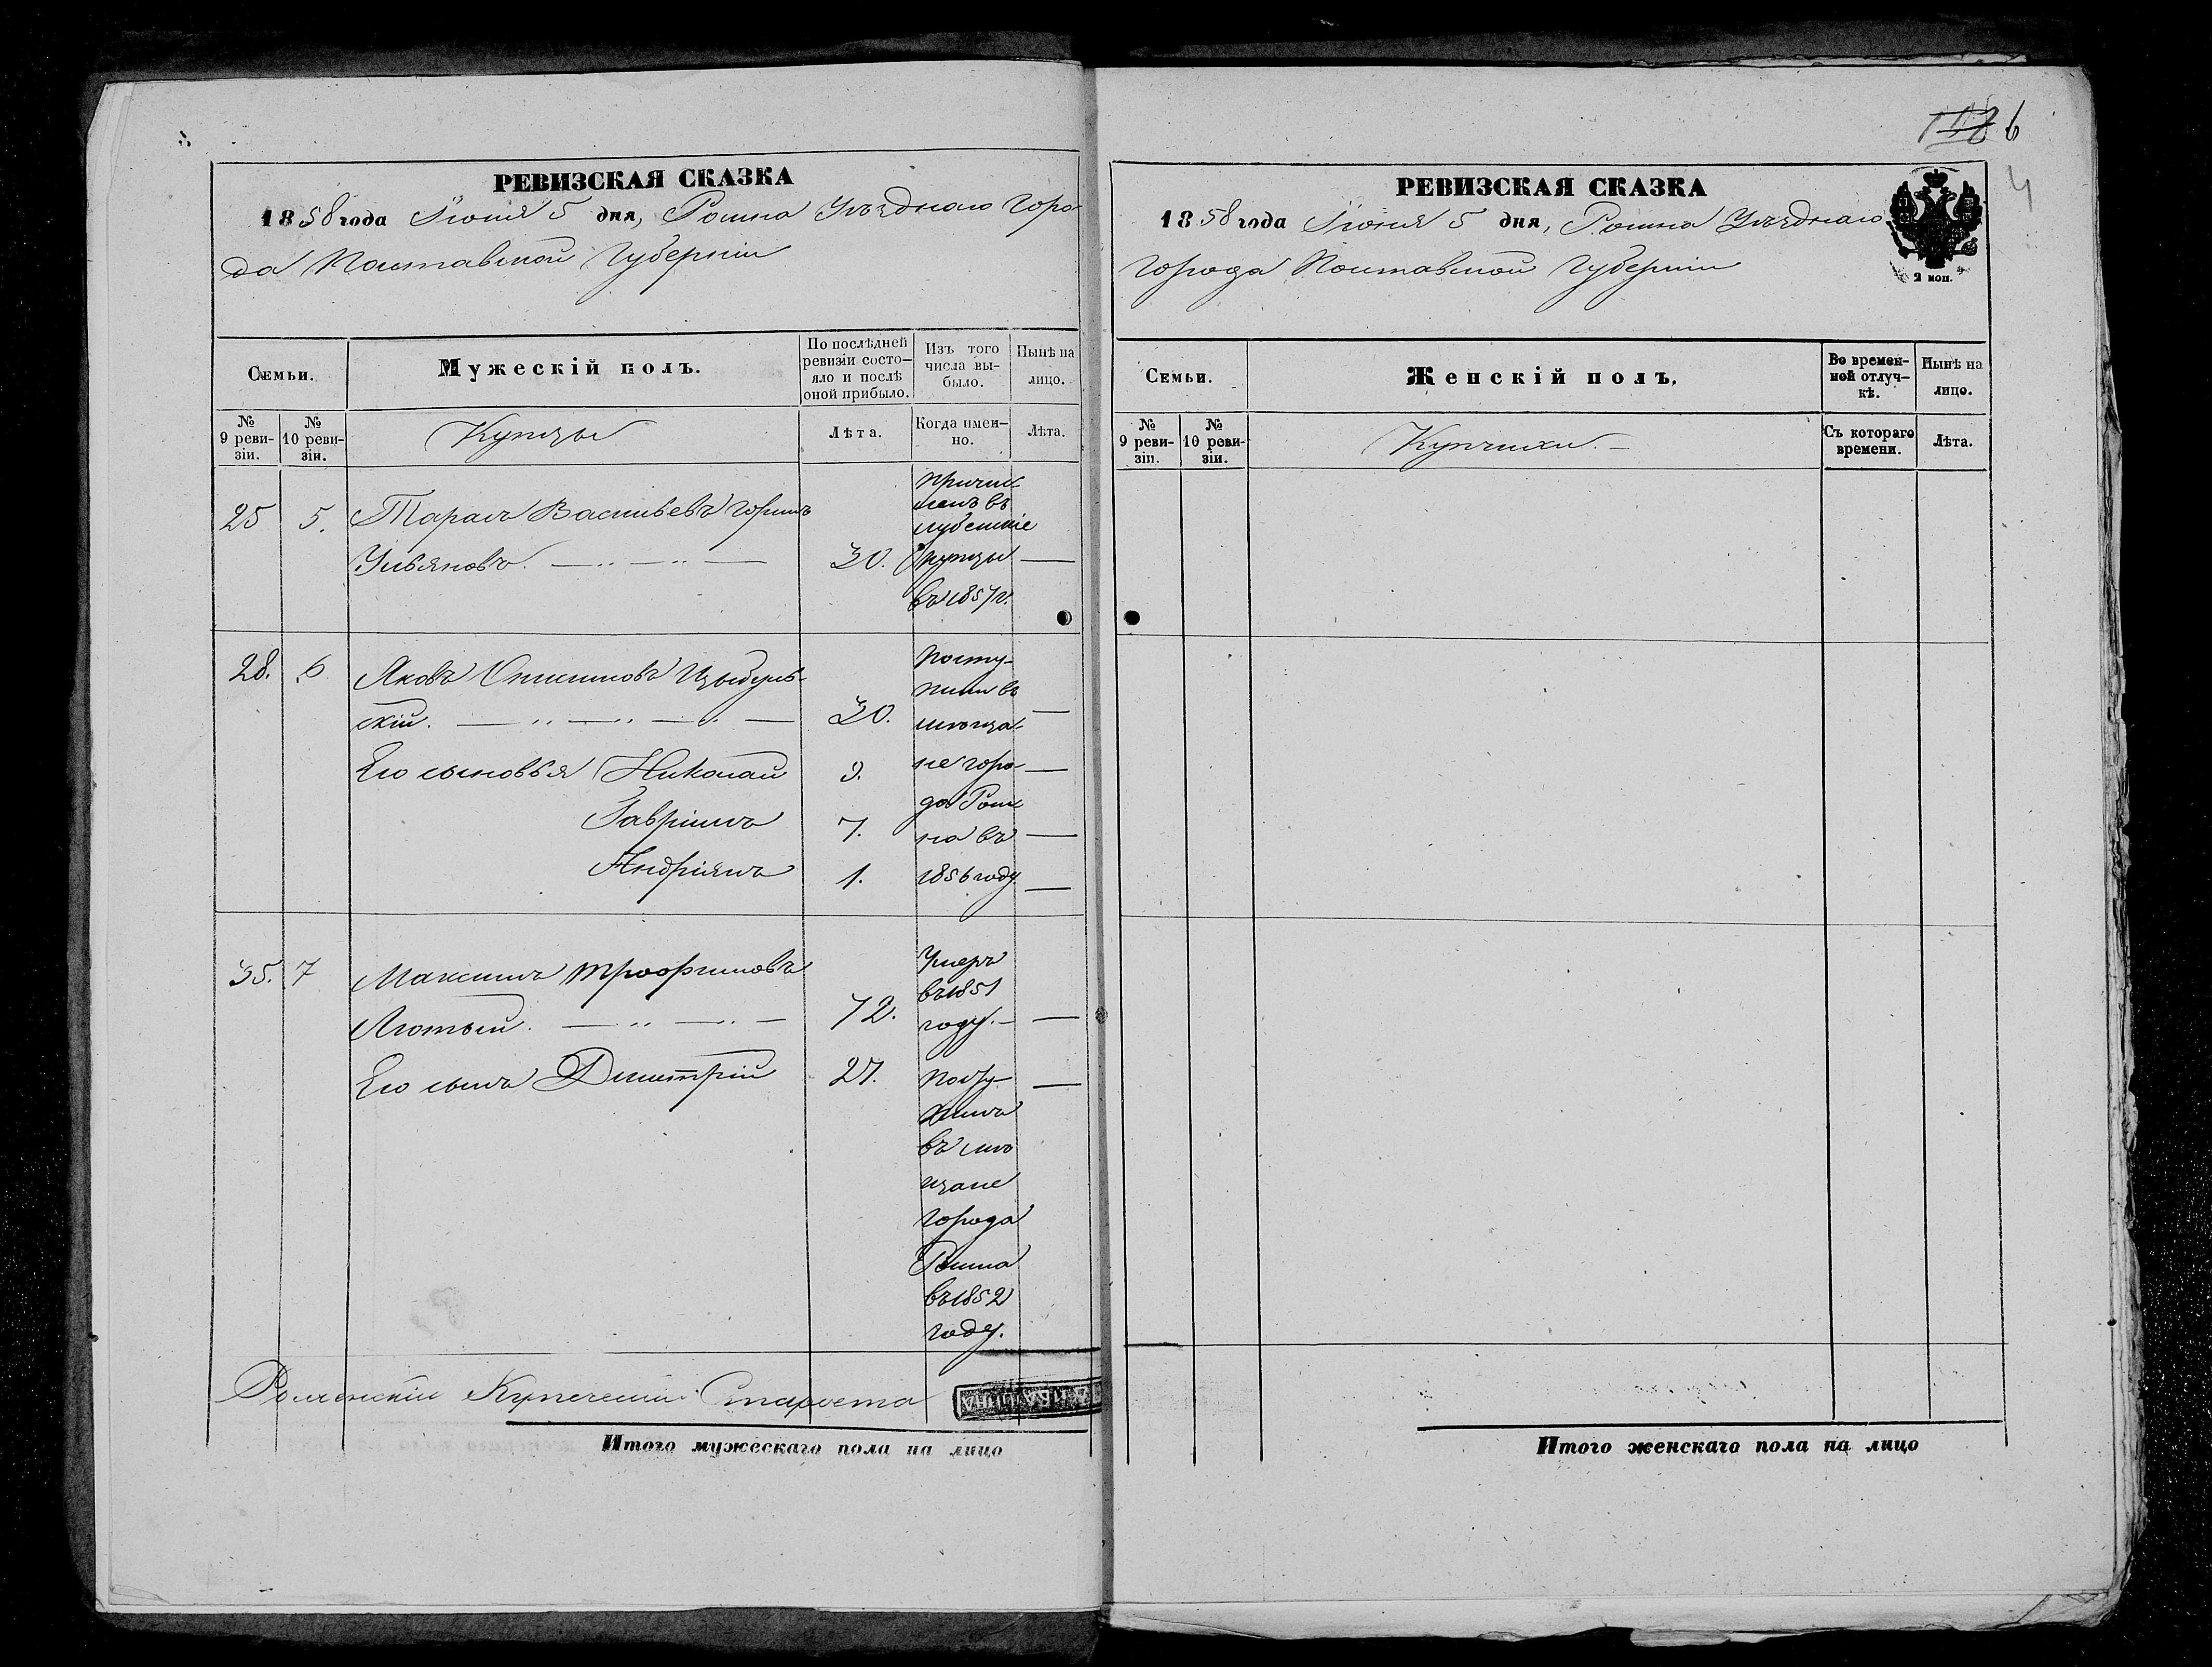 РЕВИЗСКАЯ СКАЗКА
1858 года Іюня 5 дня, Ромна Уѣзднаго Горо-
да Полтавской Губерніи
Семьи.
Мужескій полъ.
По послѣдней ревизіи состо-
яло и послѣ оной прибыло.
Изъ того числа вы-
было.
Нынѣ на лицо.
№ 9 реви-
зіи.
№ 10 реви-
зіи.
Купцы
Лѣта.
Когда имен-
но.
Лѣта.
25 5. Тарасъ Васильевъ
Ульяновъ. 30.
Причис
ленъ въ
лубенскіе
купцы
въ 1857 г.
28. 6. Яковъ Цыбуль-
скій. 30.
Его сыновья Николай 9.
Гавріилъ 7.
Андріянъ 1.
Посту-
пили въ
мѣща-
не горо-
да Ром
на въ
1856 году
35. 7 Максимъ Трофимовъ
Лютый. 72.
Умеръ
въ 1851
году.
Его сынъ Димитрій 27.
Посту-
пилъ
въ мѣ
щане
города
Ромна
въ 1852
году.
Роменскій Купеческій Староста
Итого мужескаго пола на лицо
6
4
РЕВИЗСКАЯ СКАЗКА
1858 года Іюня 5 дня, Ромна Уѣзднаго
города Полтавской Губерніи
2 коп.
Семьи.
Женскій полъ.
Во времен-
ной отлуч-
кѣ.
Нынѣ на лицо.
№ 9 реви-
зіи.
№ 10 реви-
зіи.
Купчихи.
Съ котораго времени.
Лѣта.
Итого женскаго пола на лицо